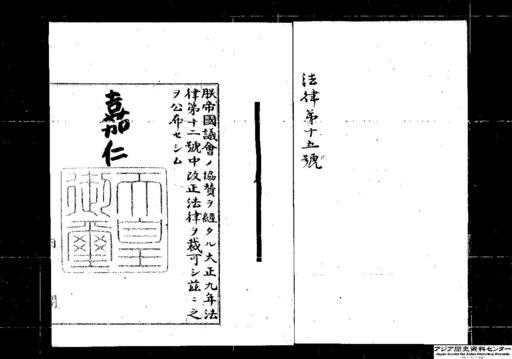 法律第十五號
朕帝國議會ノ協贊ヲ經タル大正九年法
律第十二號中改正法律ヲ裁可シ茲ニ之
ヲ公布セシム
嘉仁
天皇
御璽
アジア歴史資料センター
Japan Center for Asian Historical Records